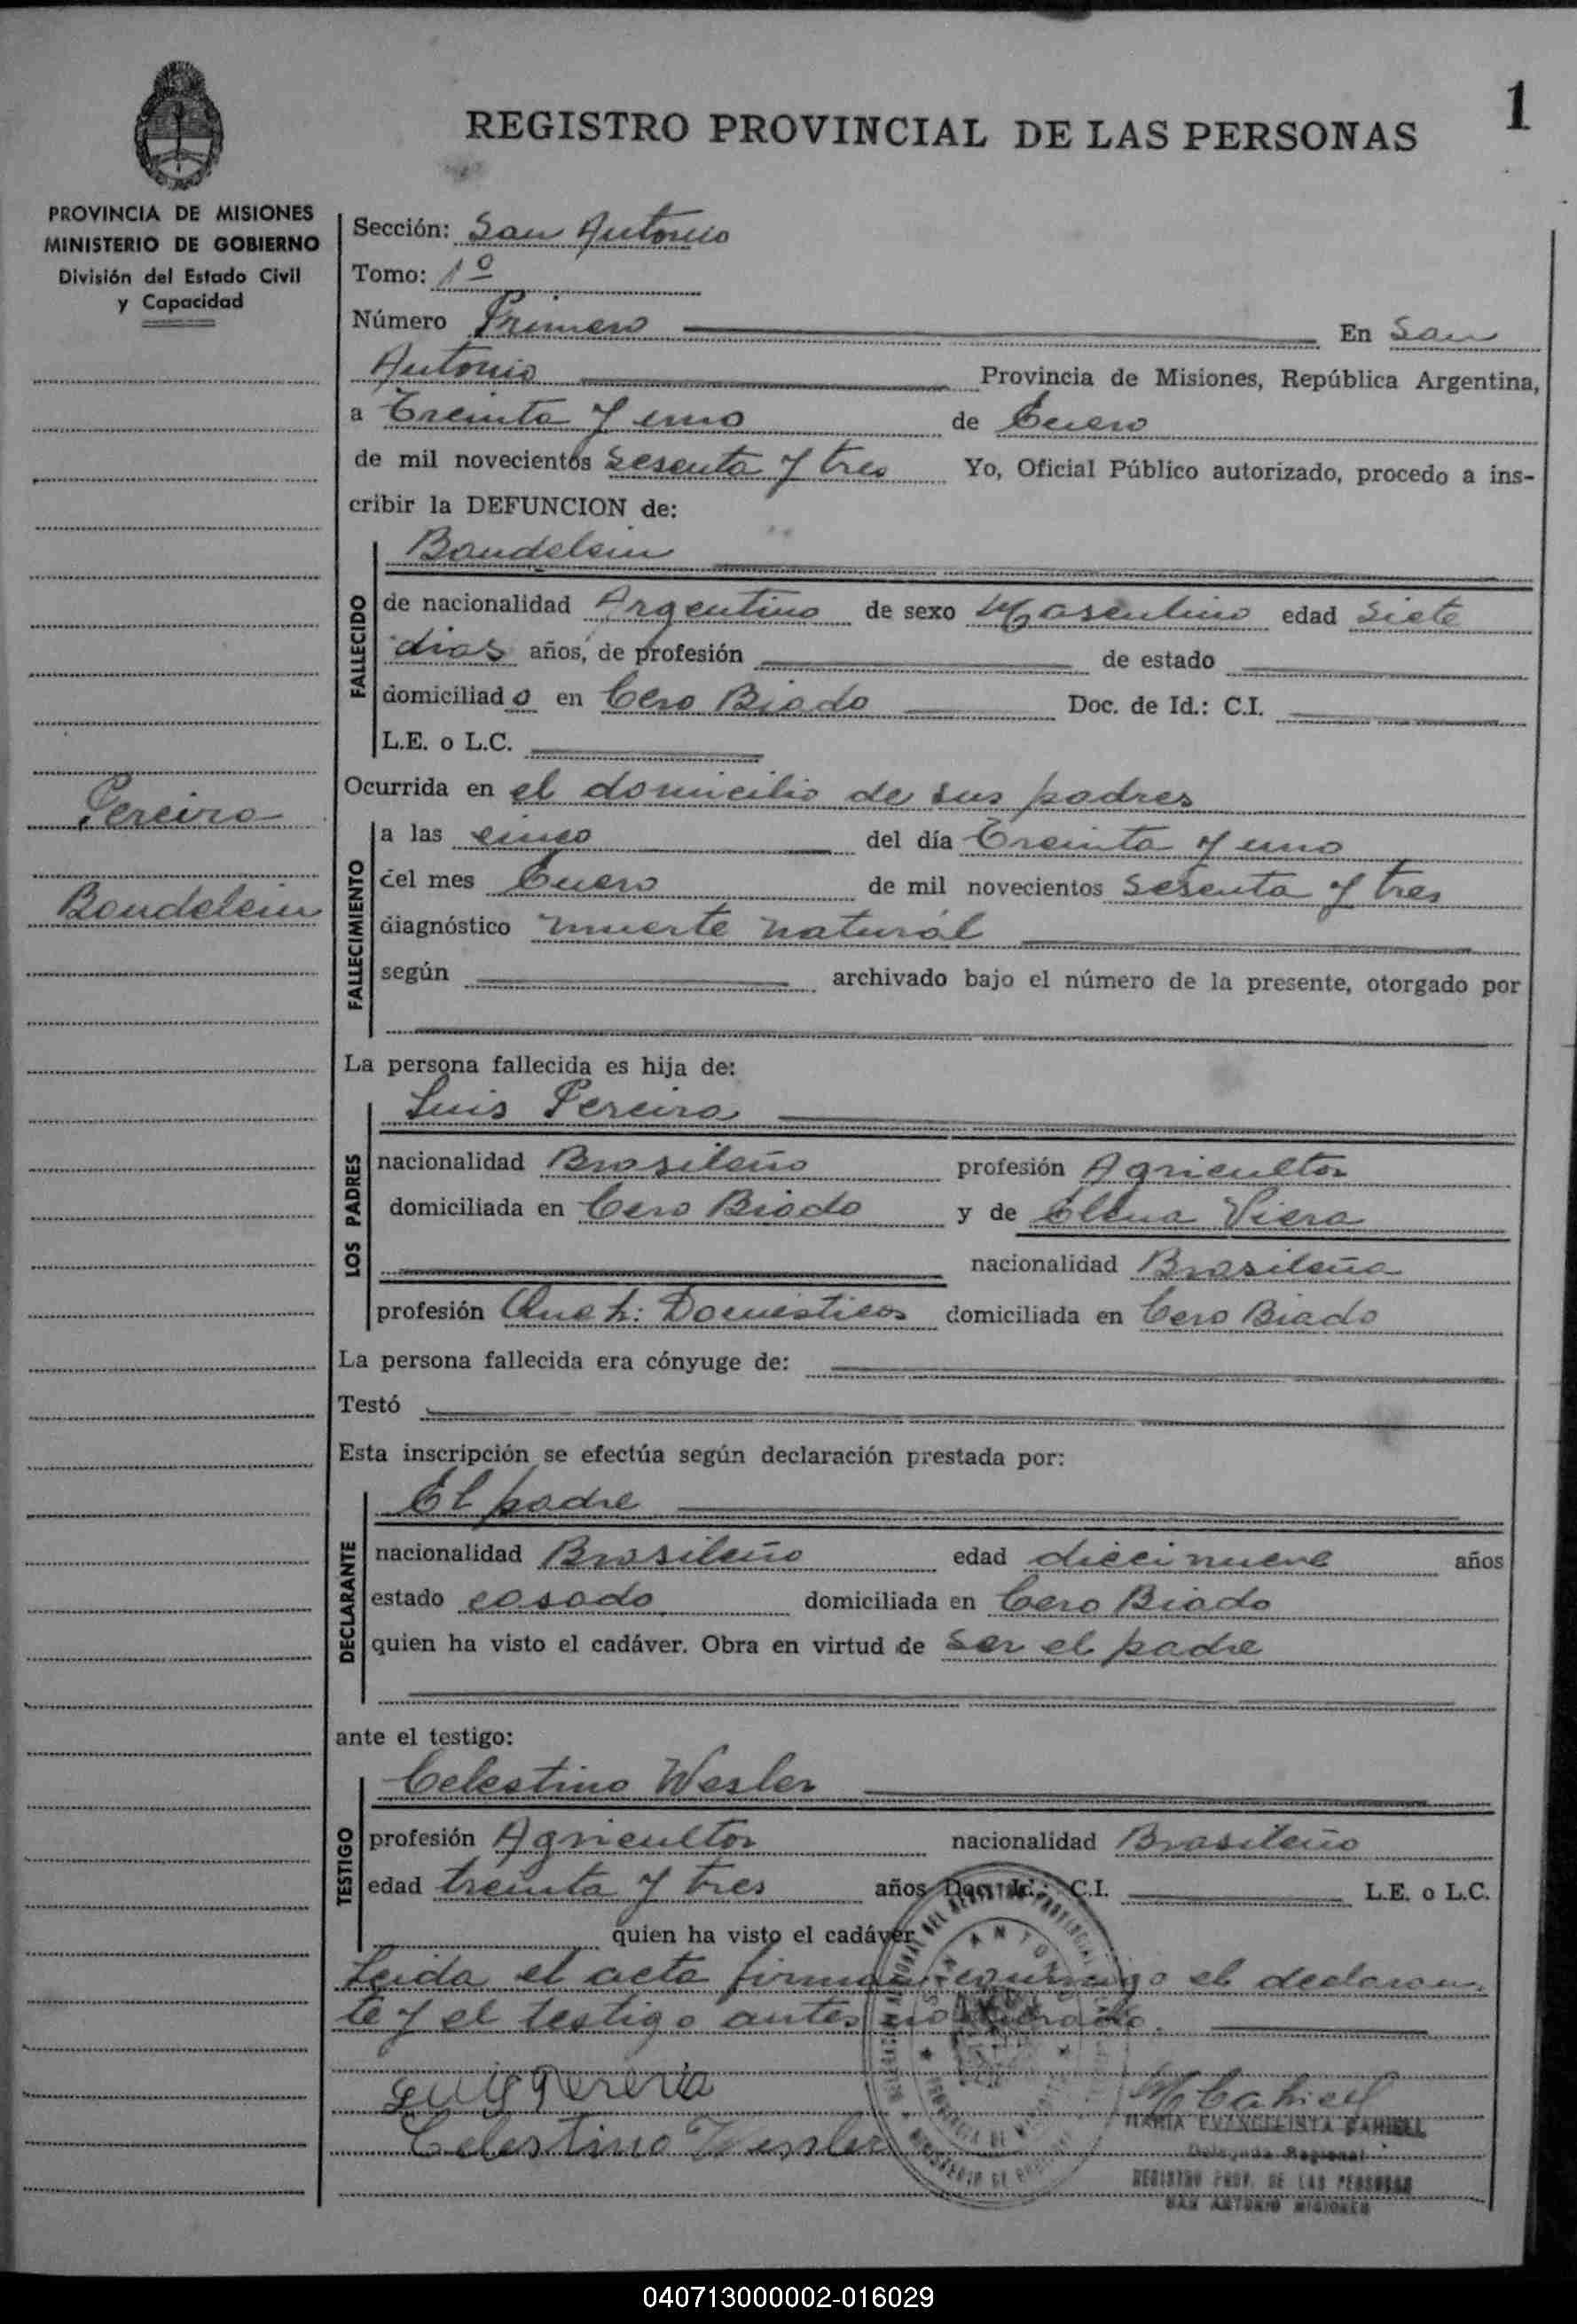 1
REGISTRO PROVINCIAL DE LAS PERSONAS
PROVINCIA DE MISIONES
MINISTERIO DE GOBIERNO
División del Estado Civil
y Capacidad
Pereira
Bandelein
Sección: San Antonio
Tomo: 1º
Número Primero En San
Antonio Provincia de Misiones, República Argentina,
a Treinta y uno de Enero
de mil novecientos Sesenta y tres Yo, Oficial Público autorizado, procedo a ins-
cribir la DEFUNCION de:
Bandelein
FALLECIDO
de nacionalidad Argentino de sexo Masculino edad Siete
dias años, de profesión de estado
domiciliado en Cero Biado Doc. de Id.: C.I.
L.E. o L.C.
Ocurrida en el domicilio de sus padres
FALLECIMIENTO
a las cinco del día Treinta y uno
del mes Enero de mil novecientos Sesenta y tres
diagnóstico muerte natural
según archivado bajo el número de la presente, otorgado por
La persona fallecida es hija de:
LOS PADRES
Luis Pereira
nacionalidad Brasileño profesión Agricultor
domiciliada en Cero Biado y de Elena Viera
nacionalidad Brasileña
profesión Queh: Domésticos domiciliada en Cero Biado
La persona fallecida era cónyuge de:
Testó
Esta inscripción se efectúa según declaración prestada por:
DECLARANTE
El padre
nacionalidad Brasileño edad diecinueve años
estado casado domiciliada en Cero Biado
quien ha visto el cadáver. Obra en virtud de ser el padre
ante el testigo:
TESTIGO
Celestino Wesler
profesión Agricultor nacionalidad Brasileño
edad treinta y tres años Doc. Id.: C.I. L.E. o L.C.
quien ha visto el cadáver
Leida el acta firman conmigo el declaran-
te y el testigo antes nombrado.
Luis Pereira
Celestino Wesler
MARIA EVANGELISTA
Delegada Regional
REGISTRO PROV. DE LAS PERSONAS
SAN ANTONIO MISIONES
040713000002-016029